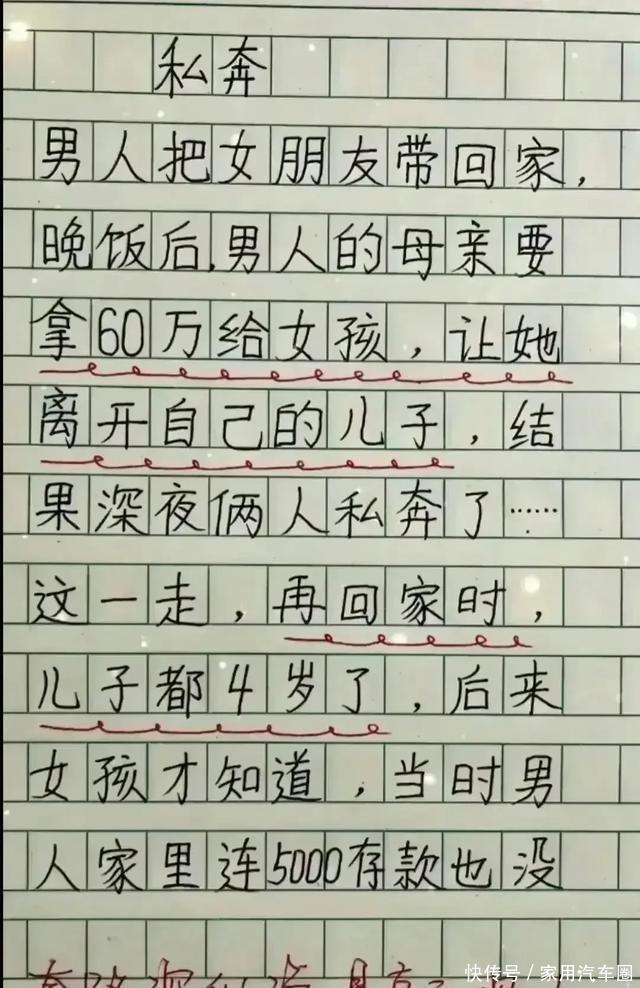 私奔
男人把女朋友带回家，
晚饭后，男人的母亲要
拿60万给女孩，让她
离开自己的儿子，结
果深夜俩人私奔了……
这一走，再回家时，
儿子都4岁了，后来
女孩才知道，当时男
人家里连5000存款也没
快传号/家用汽车圈